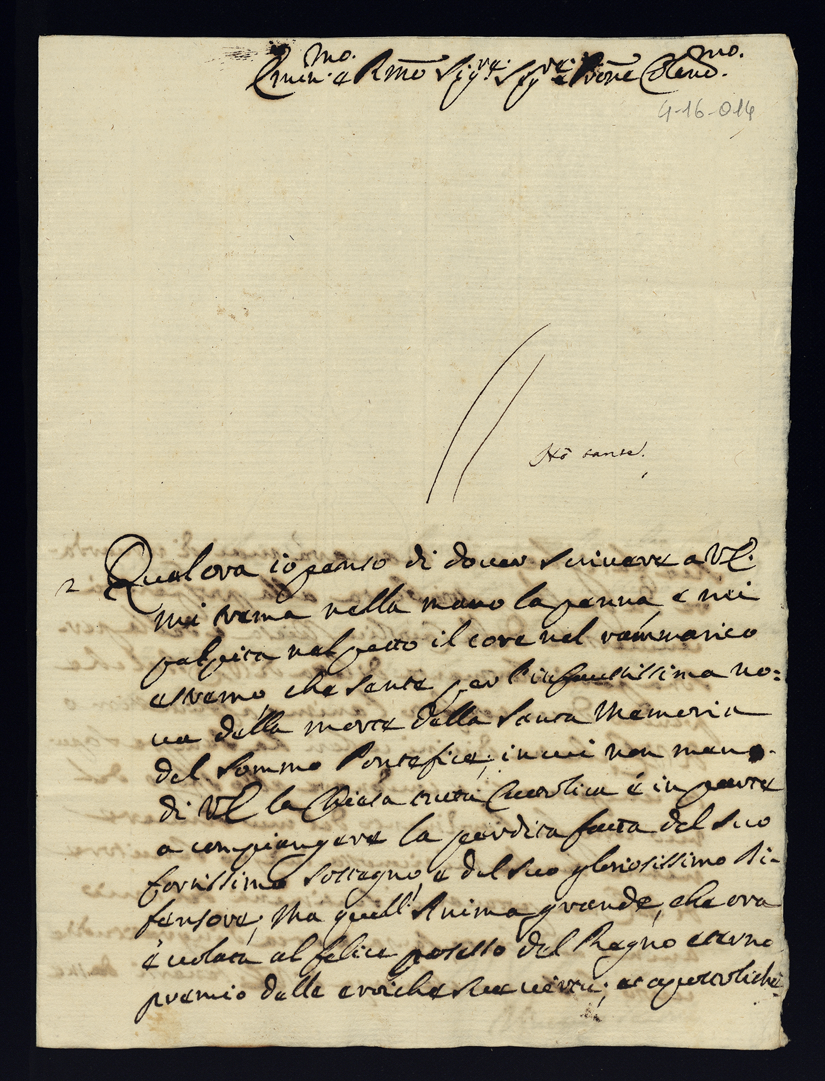 Emin.mo e R.mo Sig.re Sig.re e P̃rone Colend.mo
4-16-014
Qualora io penso di dover scrivere a VE.
mi trema nella mano la penna, e mi
palpita nel petto il core nel rammarico
estremo, che sente per l'infaustissima no=
va della morte della Santa Memoria
del Sommo Pontefice; in cui non meno
di VE la Chiesa tutta Cattolica è in parte
a compiangere la perdita fatta del suo
fortissimo sostegno, e del suo gloriosissimo di=
fensore; Ma quell'Anima grande, che ora
è volata al felice possesso del Regno eterno
premio delle eroiche sue virtù; et apostoliche